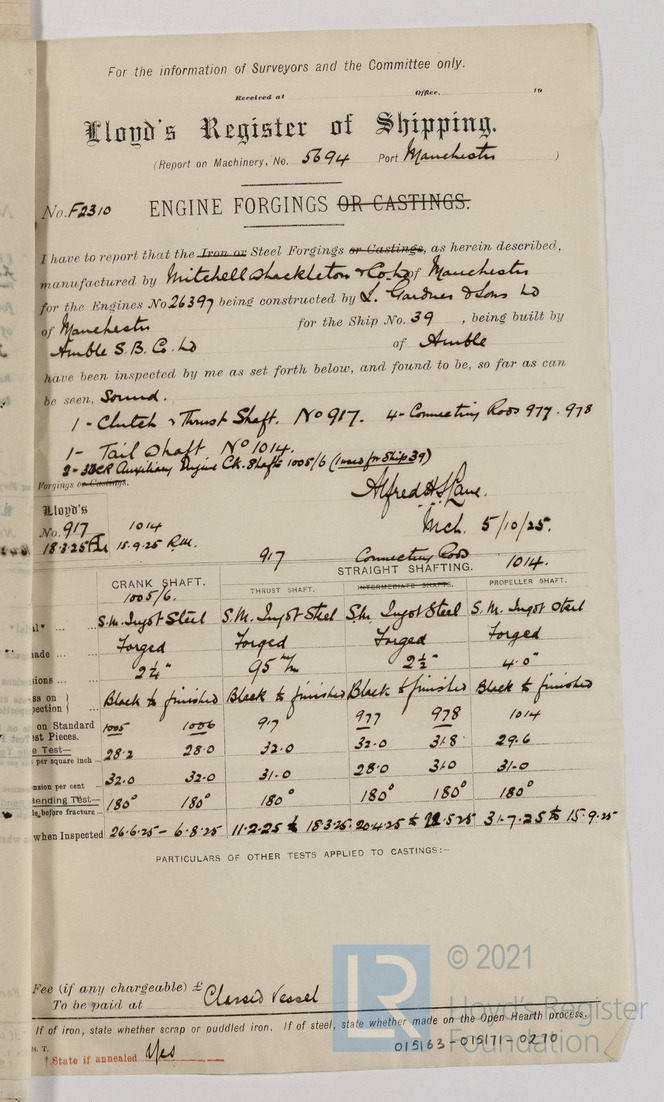 For the information of Surveyors and the Committee only.
Received at Office, 19
Lloyd's Register of Shipping.
(Report on Machinery, No. 5694 Port Manchester )
No. F2310 ENGINE FORGINGS OR CASTINGS.
I have to report that the Iron or Steel Forgings or Castings, as herein described,
manufactured by Mitchell Shackleton & Co. Ld of Manchester
for the Engines No 26397 being constructed by L. Gardner & Sons Ld
of Manchester for the Ship No. 39 , being built by
Amble S.B. Co. Ld of Amble
have been inspected by me as set forth below, and found to be, so far as can
be seen, Sound.
1 - Clutch & Thrust Shaft. No 917. 4 - Connecting Rods 977. 978
1 - Tail Shaft No 1014.
Auxiliary Engine Ck. Shafts 1005/6 (1 used for Ship 39)
Forgings or Castings.
Alfred H.S. Lane.
Lloyd's
No. 917 1014
Mch. 5/10/25.
18.3.25 15.9.25 R.W.
917 Connecting Rods 1014.
CRANK SHAFT. STRAIGHT SHAFTING.
1005/6. THRUST SHAFT. INTERMEDIATE SHAFTS. PROPELLER SHAFT.
al* ... ... S.M. Ingot Steel S.M. Ingot Steel S.M. Ingot Steel S.M. Ingot Steel
ade ... ... Forged Forged Forged Forged
sions ... ... 2¼" 95 m/m 2½" 4.0"
ss on } pection } ... Black to finished Black to finished Black to finished Black to finished
on Standard est Pieces. 1005 1006 917 977 978 1014
e Test— per square inch 28.2 28.0 32.0 32.0 31.8 29.6
nsion per cent 32.0 32.0 31.0 28.0 31.0 31.0
Bending Test— le, before fracture 180° 180° 180° 180° 180° 180°
when Inspected 26.6.25 - 6.8.25 11.2.25 to 18.3.25 20.4.25 to 5.25 31.7.25 to 15.9.25
PARTICULARS OF OTHER TESTS APPLIED TO CASTINGS:—
Fee (if any chargeable) £
To be paid at Classed Vessel
If of iron, state whether scrap or puddled iron. If of steel, state whether made on the Open Hearth process.
† State if annealed Yes
015163-015171-0270
© 2021
Lloyd's Register
Foundation
LR